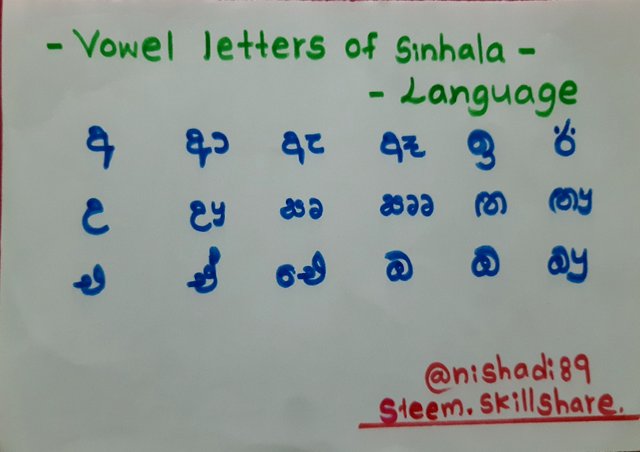 - Vowel letters of Sinhala -
- Language
අ ආ ඇ ඈ ඉ ඊ
උ ඌ සෘ සෲ ඏ ඐ
එ ඒ ඓ ඔ ඔ ඔෟ
@nishadi89
Steem.skillshare.